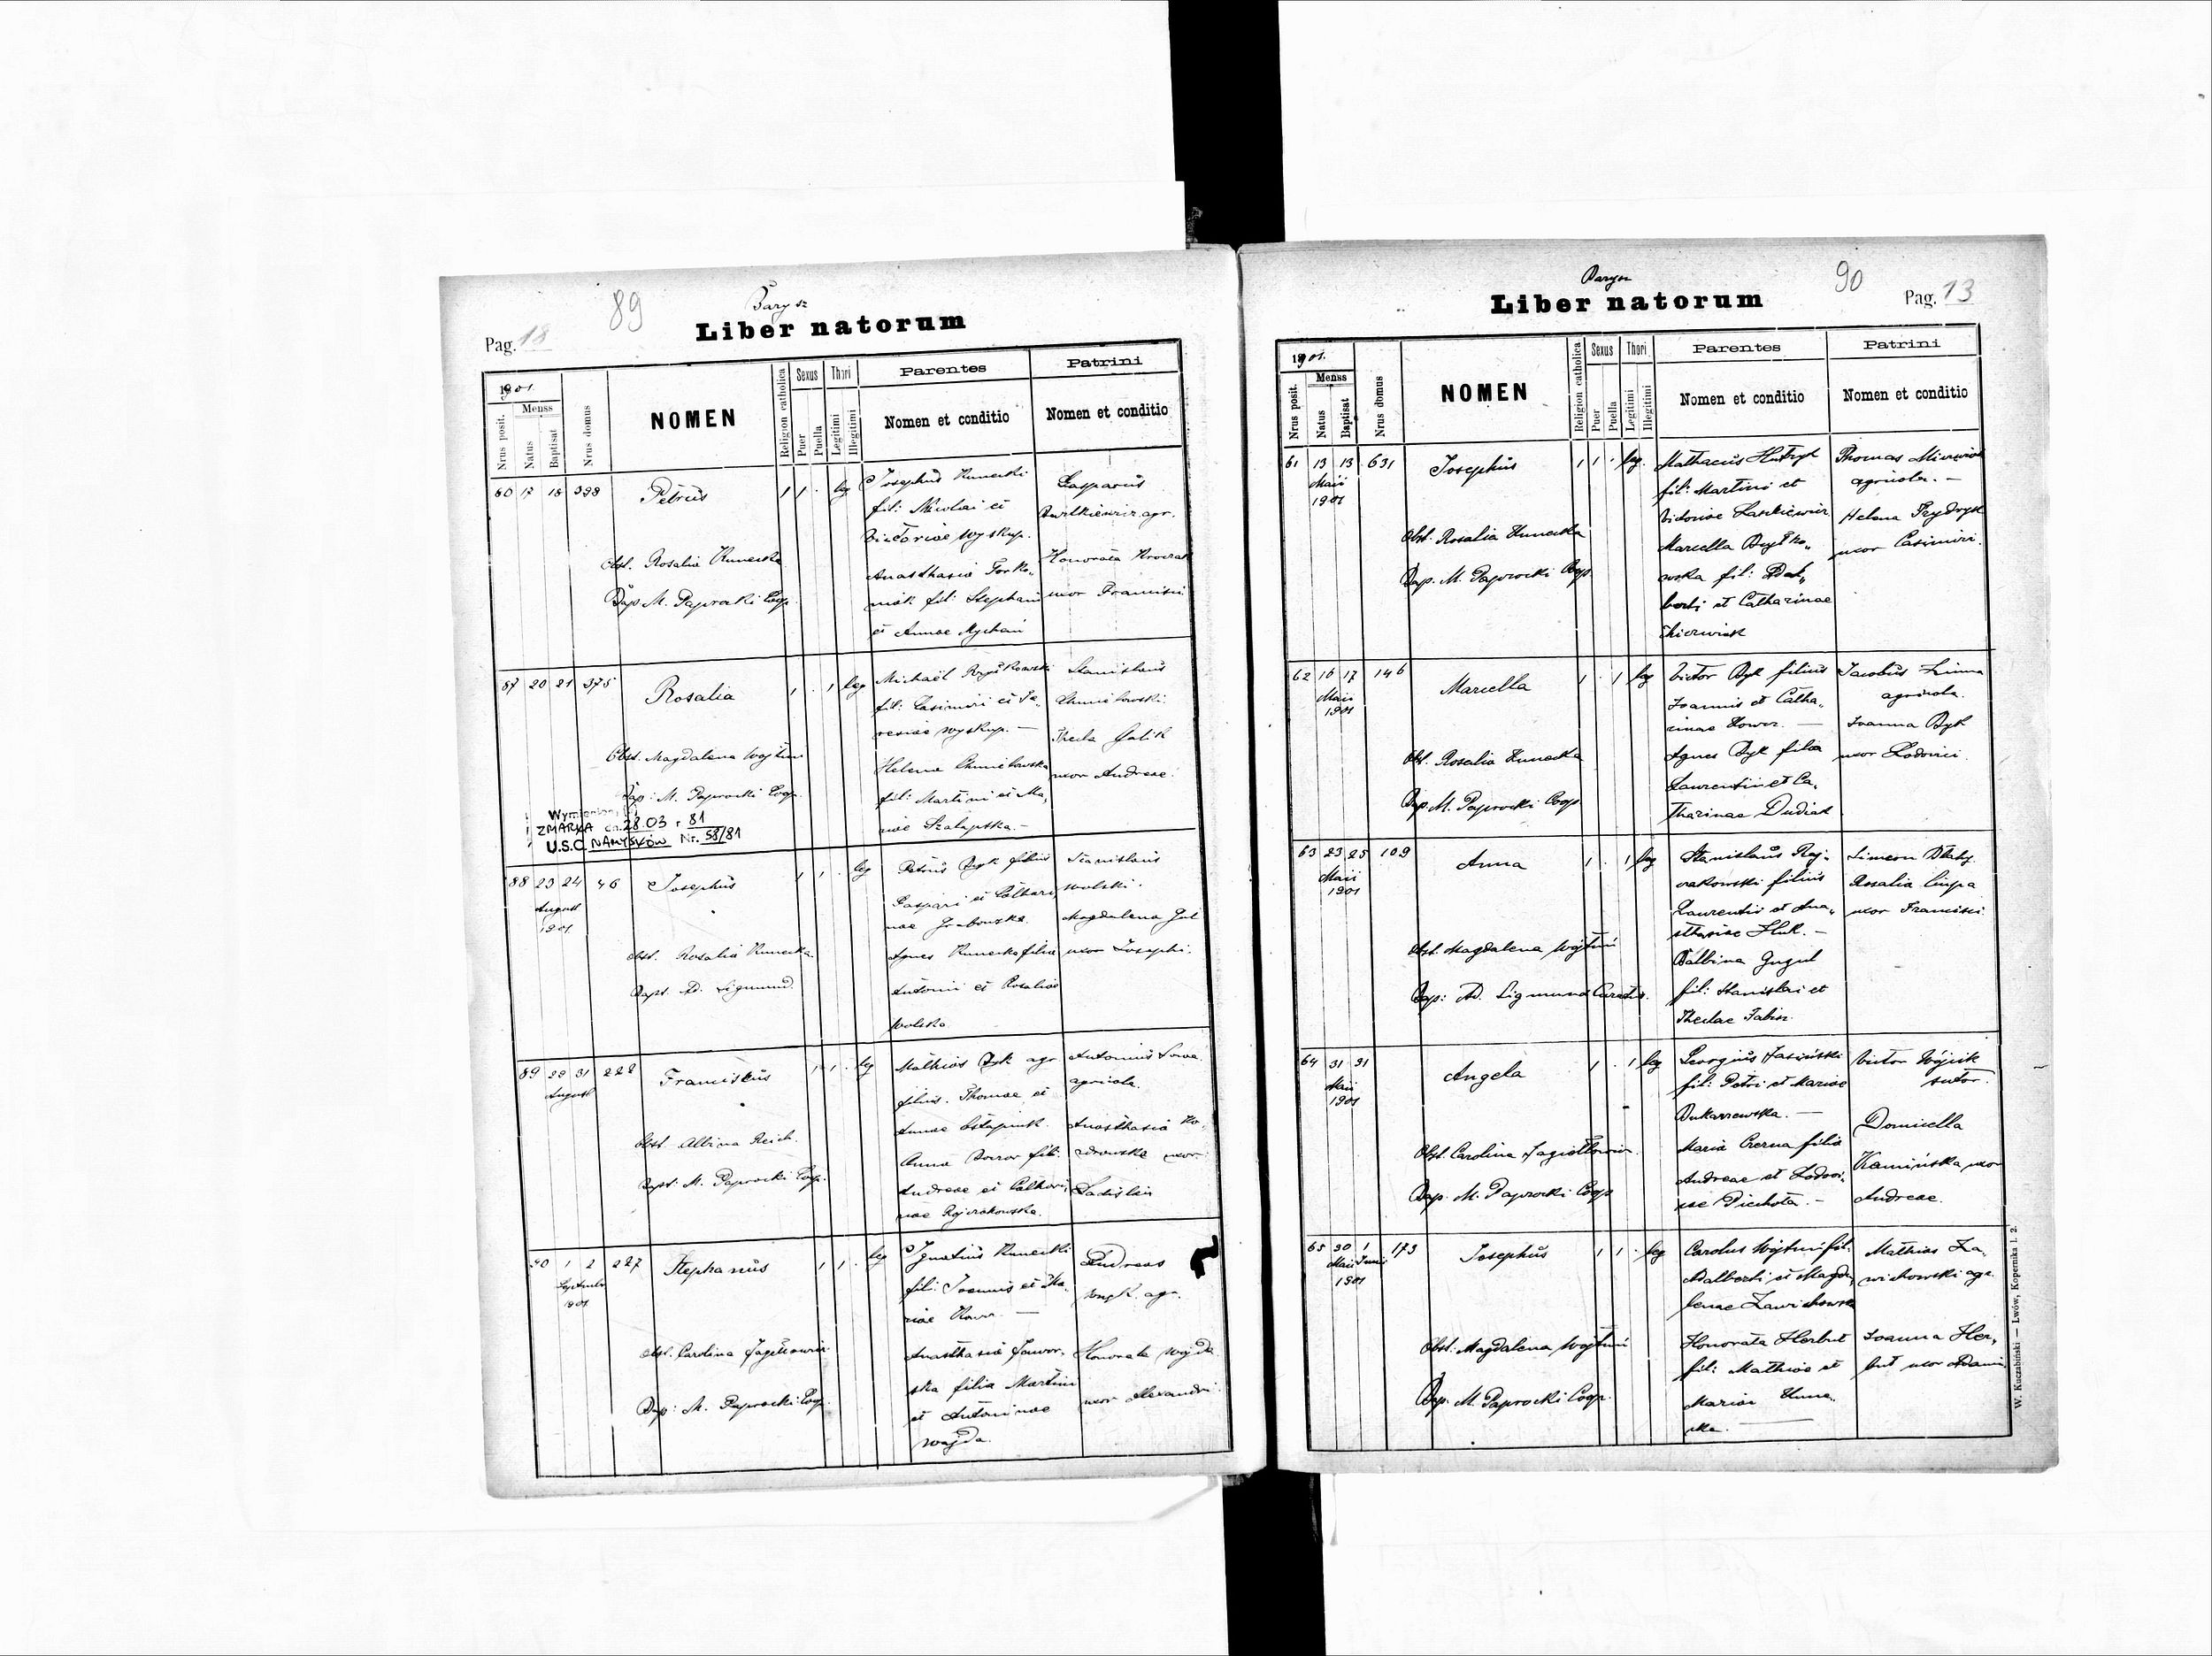 89
Barysz
Pag. 18
Liber natorum
1901.
Nrus posit.
Menss
Natus
Baptisat
Nrus domus
NOMEN
Religion catholica
Sexus
Puer
Puella
Thori
Legitimi
Illegitimi
Parentes
Nomen et conditio
Patrini
Nomen et conditio
17 18 398 Petrus 1 1 . leg
Josephus Kunecki
fil: Nicolai et
Victoriae Wyskup.
Anasthasia
fil: Stephani
et Annae
Gasparus
agr.
Honorata
uxor Francisci
Obst. Rosalia Kunecka
Bap M. Paprocki Coop.
87 20 21 375 Rosalia 1 . 1 leg
Michaël Bytkowski
fil: Casimiri et Te,
resiae Wyskup. —
Helena Chmielowska
fil: Martini et Ma,
riae
Stanislaus
Chmielowski.
Thecla Gulik
uxor Andreae.
Obst. Magdalena Wojtun
Bap: M. Paprocki Coop.
ZMARŁA dn. 28.03 r. 81
U.S.C. NAMYSŁÓW Nr. 58/81
88 23 24 46 Josephus 1 1 . leg
August
1901
Petrus Byk filius
Gaspari et Cathari,
nae
Agnes Kunecka filia
Antonii et Rosaliae
Wolska
Stanislaus
Wolski.
Magdalena Gul
uxor Josephi.
Obst. Rosalia Kunecka
Bapt. Ad. Ligmund.
89 29 31 222 Franciscus 1 1 . leg
August
Mathias Byk agr
filius Thomae et
Annae Ostapiuk.
Anna fil:
Andreae et Cathari,
nae Rojczakowska.
Antonius Sowa
agricola.
Anasthasia Ko,
uxor
Ladislai
Obst. Albina Reich.
Bapt. M. Paprocki Coop.
90 1 2 227 Stephanus 1 1 . leg
Septembr
1901
Ignatius Kunecki
fil: Joannis et Ma,
riae
Anasthasia Jawor,
ska filia Martini
et Antoninae
Wajda.
Andreas
agr.
Honorata Wajda
uxor Alexandri.
Obst. Carolina Jagiełłowicz
Bap: M. Paprocki Coop.
Barysz
90
Liber natorum
Pag. 13
1901.
Nrus posit.
Menss
Natus
Baptisat
Nrus domus
NOMEN
Religion catholica
Sexus
Puer
Puella
Thori
Legitimi
Illegitimi
Parentes
Nomen et conditio
Patrini
Nomen et conditio
61 13 13 631 Josephus 1 1 . leg.
Maii
1901
Mathaeus
fil: Martini et
Victoriae Laszkiewicz
Marcella Bytko,
wska fil: Adal,
berti et Catharinae
Thomas
agricola. —
Helena Frydryk
uxor Casimiri.
Obst. Rosalia Kunecka
Bap. M. Paprocki Coop.
62 16 17 146 Marcella 1 . 1 leg
Maii
1901
Victor Byk filius
Joannis et Catha,
rinae —
Agnes Byk filia
Laurentii et Ca,
tharinae Dudiak
Jacobus Zima
agricola.
Joanna Byk
uxor Ludovici.
Obst. Rosalia Kunecka
Bap M. Paprocki Coop
63 23 25 109 Anna 1 . 1 leg
Maii
1901
Stanislaus Roj,
czakowski filius
Laurentii et Ana,
sthasiae Huk. —
Balbina Gugul
fil: Stanislai et
Theclae Fabisz.
Simeon
Rosalia
uxor Francisci.
Obst. Magdalena Wojtuń
Bap: Ad. Ligmund Curatus.
64 31 31 Angela 1 . 1 leg
Maii
1901
Georgius Jasiński
fil: Petri et Mariae
—
Maria Czerna filia
Andreae et Ludovi,
cae Piechota. —
Victor Wójcik
sutor.
Domicella
Kamińska uxor
Andreae.
Obst. Carolina Jagiełłowicz.
Bap. M. Paprocki Coop
65 30 1 173 Josephus 1 1 . leg
Maii Junii
1901
Carolus Wojtuń fil:
Adalberti et Magda,
lenae Zawichowska
Honorata Herbut
fil: Mathiae et
Mariae
Mathias Za,
wichowski agr.
Joanna Her,
but uxor Adami
Obst. Magdalena Wojtuń
Bap. M. Paprocki Coop.
W. Kuczabiński — Lwów, Kopernika l. 2.